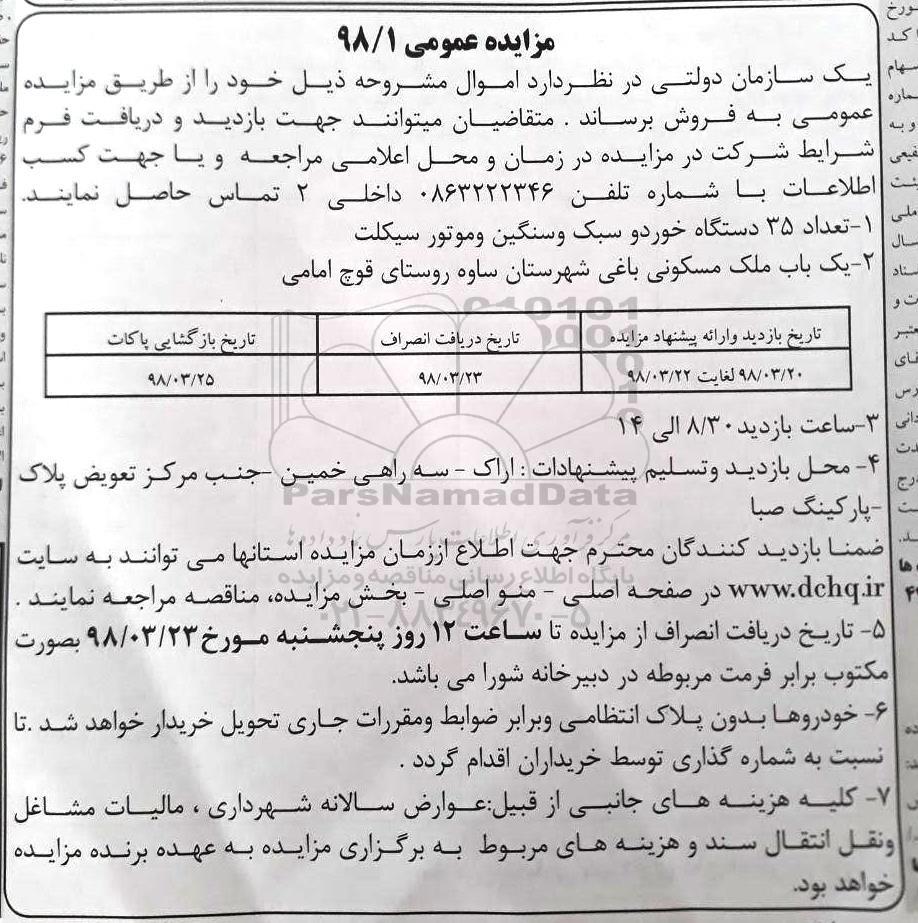 مزایده عمومی ۹۸/۱
یک سازمان دولتی در نظردارد اموال مشروحه ذیل خود را از طریق مزایده
عمومی به فروش برساند . متقاضیان میتوانند جهت بازدید و دریافت فرم
شرایط شرکت در مزایده در زمان و محل اعلامی مراجعه و یا جهت کسب
اطلاعات با شماره تلفن ۰۸۶۳۲۲۲۳۴۶ داخلی ۲ تماس حاصل نمایند.
۱-تعداد ۳۵ دستگاه خوردو سبک وسنگین وموتور سیکلت
۲-یک باب ملک مسکونی باغی شهرستان ساوه روستای قوچ امامی
تاریخ بازدید وارائه پیشنهاد مزایده
تاریخ دریافت انصراف
تاریخ بازگشایی پاکات
۹۸/۰۳/۲۰ لغایت ۹۸/۰۳/۲۲
۹۸/۰۳/۲۳
۹۸/۰۳/۲۵
۳-ساعت بازدید ۸/۳۰ الی ۱۴
۴- محل بازدید وتسلیم پیشنهادات : اراک - سه راهی خمین -جنب مرکز تعویض پلاک
-پارکینگ صبا
ParsNamadData
ضمنا بازدید کنندگان محترم جهت اطلاع اززمان مزایده استانها می توانند به سایت
پایگاه اطلاع رسانی مناقصه و مزایده
www.dchq.ir در صفحه اصلی - منو اصلی - بخش مزایده، مناقصه مراجعه نمایند .
۰۲۱-۸۸۳۴۹۶۷۰-۵
۵- تاریخ دریافت انصراف از مزایده تا ساعت ۱۲ روز پنجشنبه مورخ ۹۸/۰۳/۲۳ بصورت
مکتوب برابر فرمت مربوطه در دبیرخانه شورا می باشد.
۶- خودروها بدون پلاک انتظامی وبرابر ضوابط ومقررات جاری تحویل خریدار خواهد شد .تا
نسبت به شماره گذاری توسط خریداران اقدام گردد .
۷- کلیه هزینه های جانبی از قبیل:عوارض سالانه شهرداری ، مالیات مشاغل
ونقل انتقال سند و هزینه های مربوط به برگزاری مزایده به عهده برنده مزایده
خواهد بود.